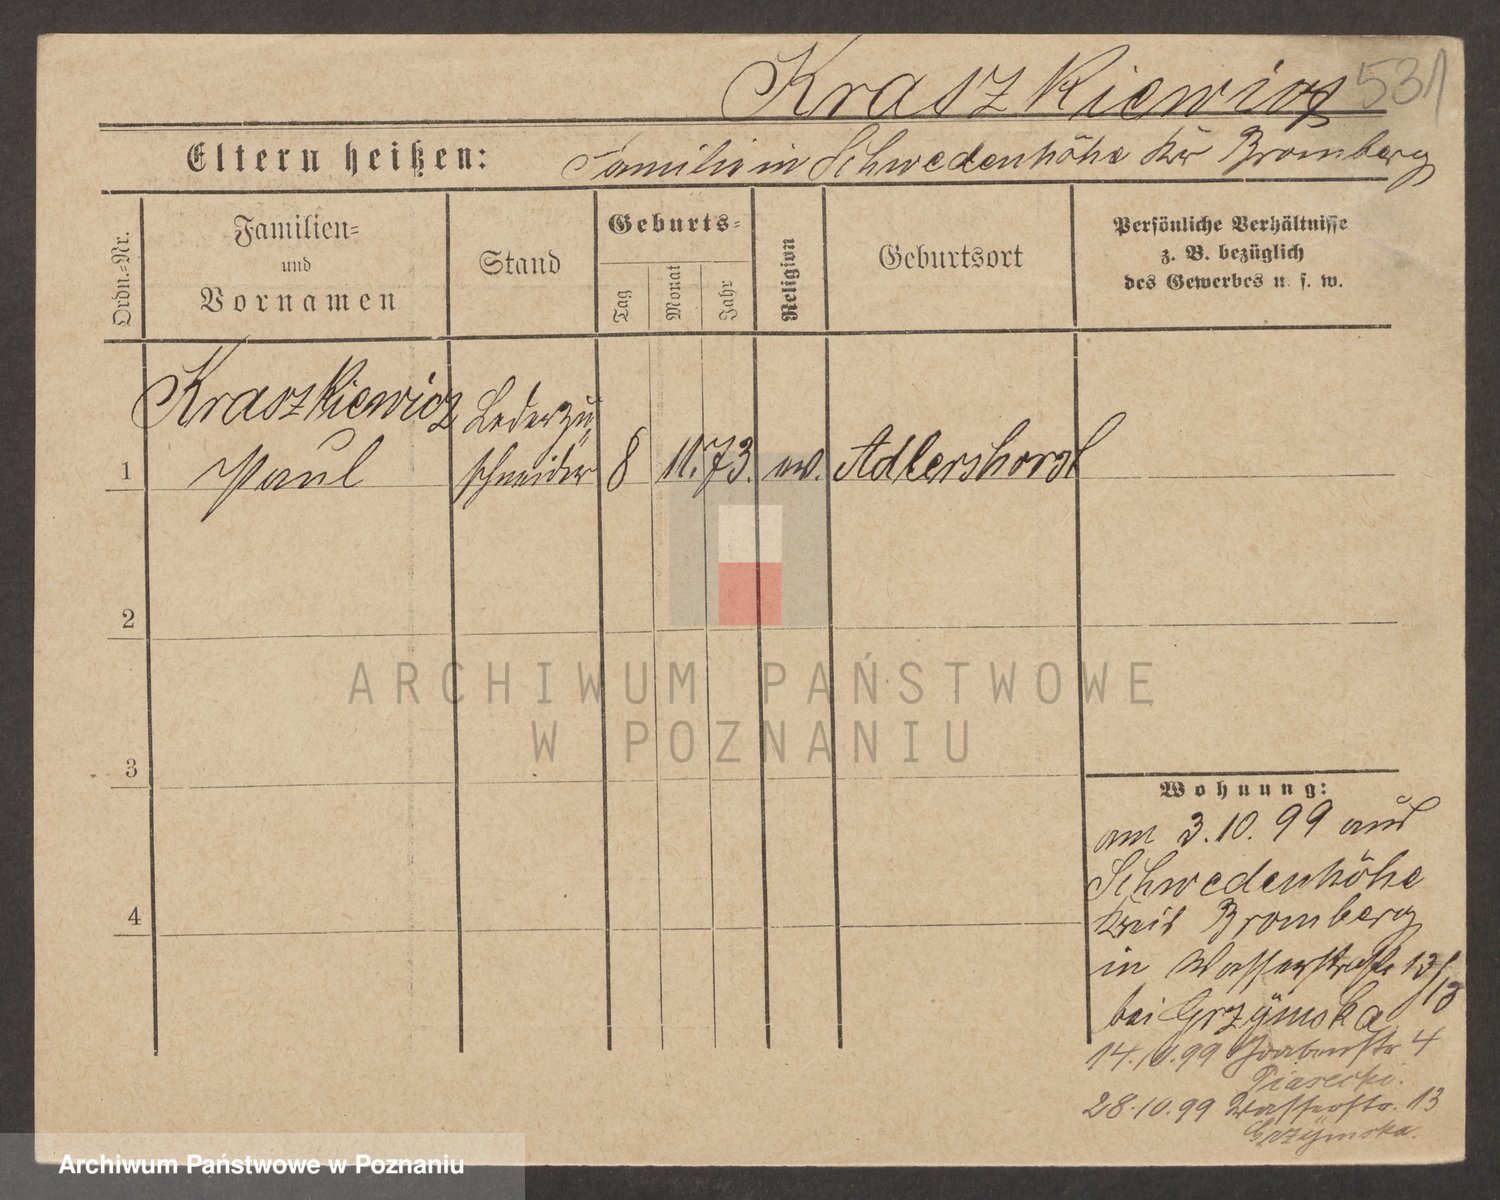 Kraszkiewicz 531
Eltern heißen: Familie in Schwedenhöhe Kr Bromberg
Ordn.-Nr.
Familien-
und
Vornamen
Stand
Geburts-
Tag
Monat
Jahr
Religion
Geburtsort
Persönliche Verhältnisse
z. B. bezüglich
des Gewerbes u. s. w.
Kraszkiewicz Lederzu
1 Paul schneider 8 11. 73. ev. Adlershorst
2
3
4
ARCHIWUM PAŃSTWOWE
W POZNANIU
Wohnung:
am 3.10.99 aus
Schwedenhöhe
Kreis Bromberg
in Wasserstraße 13/
bei Grzÿmska
14.10.99 Grabenstr 4
Piasecki.
28.10.99 Wasserstr. 13
Grzÿmska.
Archiwum Państwowe w Poznaniu